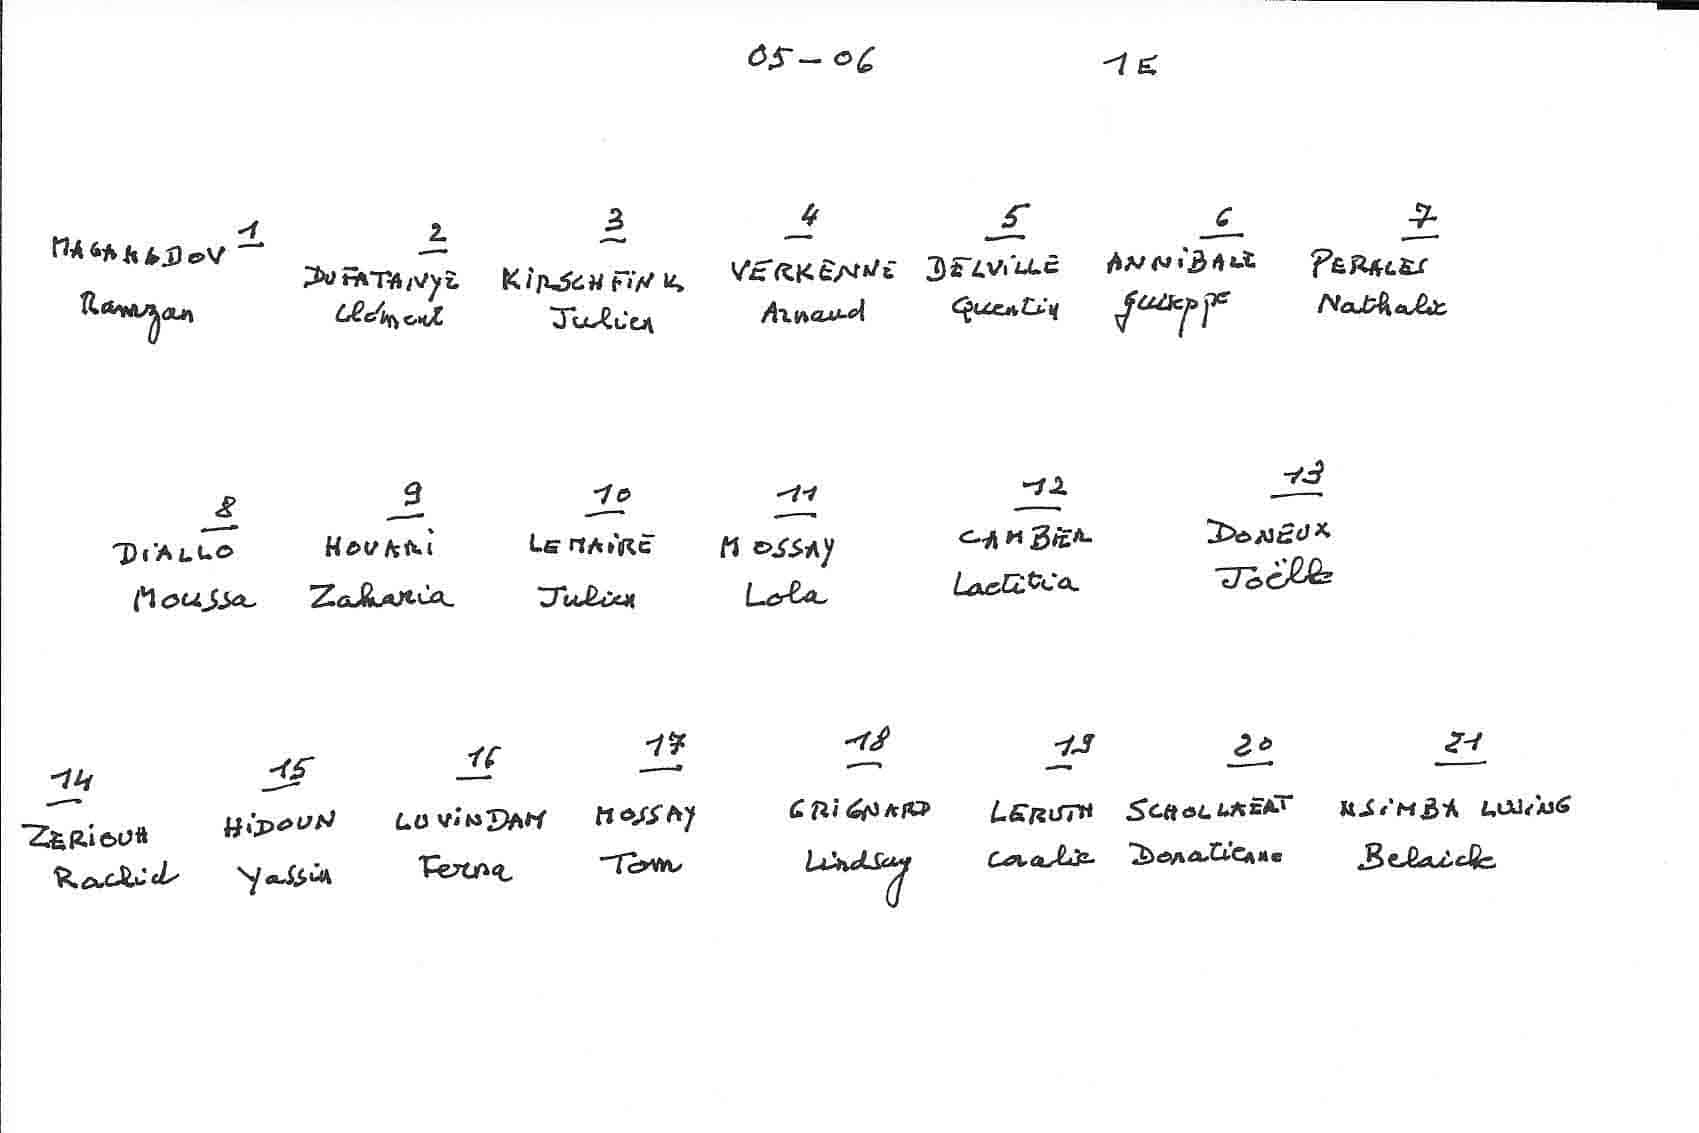 05-06 1E
1 2 3 4 5 6 7
DUFATANYE KIRSCHFINK VERKENNE DELVILLE ANNIBALE PERALES
Ramzan Clément Julien Arnaud Quentin Nathalie
8 9 10 11 12 13
DIALLO HOUARI LEMAIRE MOSSAY CAMBIER DONEUX
Moussa Zaharia Julien Lola Laetitia Joëlle
14 15 16 17 18 19 20 21
ZERIOUH HIDOUN LUVINDAM MOSSAY GRIGNARD LERUTH NSIMBA
Rachid Yassin Ferna Tom Lindsay Coralie Donatienne